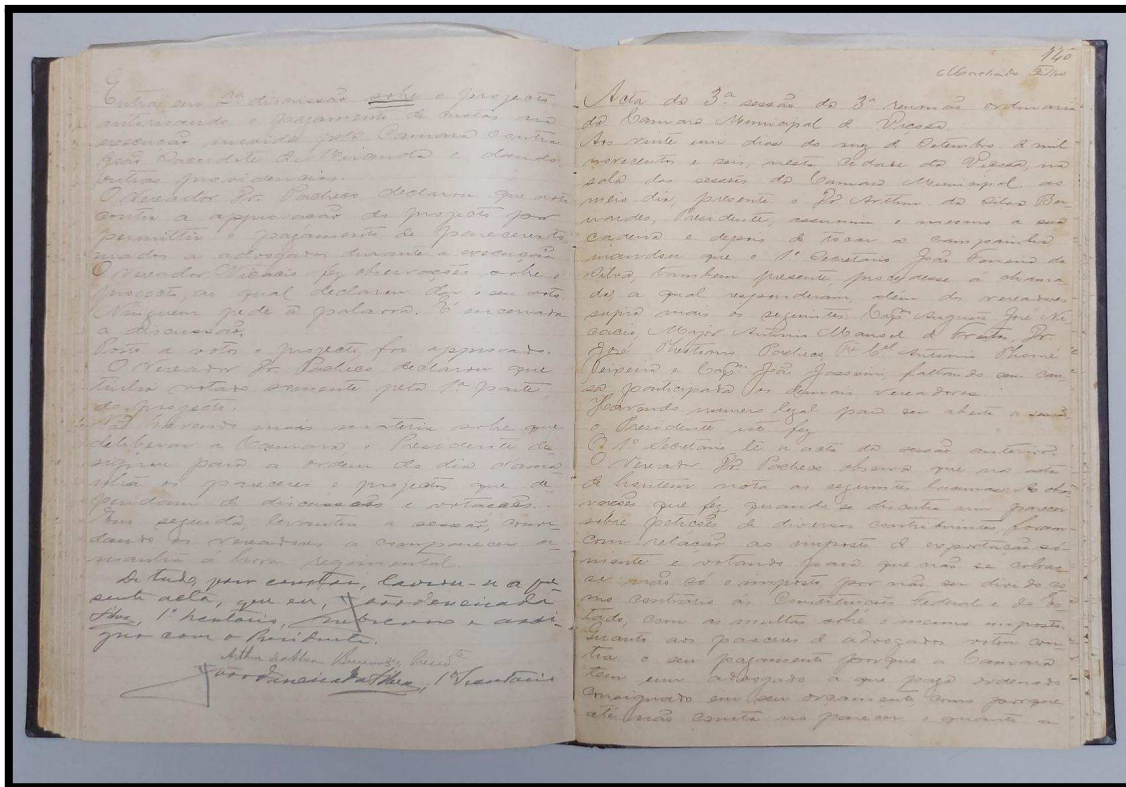 Entra em 2ª discussão sobre o projecto
autorisando o pagamento de custas na
execução movida pela Camara contra
de Miranda e dando
outras providencias.
O Vereador Dr. Pacheco declarou que vota
contra a approvação do projecto por
permittir o pagamento de pareceres to-
mados a advogados durante a execução
O vereador fez observações sobre o
projecto, ao qual declarou dar o seu voto.
Ninguem pede a palavra. É encerrada
a discussão.
Posto a votos o projecto foi approvado.
O Vereador Dr. Pacheco declarou que
tinha votado somente pela 1ª parte
do projecto.
Não havendo mais materia sobre que
deliberar a Camara, o Presidente de-
signou para a ordem do dia d'ama-
nhã os pareceres e projectos que de-
pendem de discussão e votação.
Em seguida, levantou a sessão, convi-
dando os vereadores a comparecer a-
manhã á hora regimental.
De tudo, para constar, lavrou-se a pre-
sente acta, que eu, João Ferreira da
Silva, 1º Secretario, subscrevo e assi-
gno com o Presidente.
Arthur da Silva Bernardes, Presid.te
João Ferreira da Silva, 1º Secretario
140
Machado Filho
Acta da 3ª sessão da 3ª reunião ordinaria
da Camara Municipal de Viçosa.
Aos vinte um dias do mez de Setembro de mil
novecentos e seis, nesta Cidade de Viçosa, na
sala das sessões da Camara Municipal, ao
meio dia, presente o Dr. Arthur da Silva Ber-
nardes, Presidente, assumiu o mesmo a sua
cadeira e depois de tocar a campainha
mandou que o 1º Secretario João Ferreira da
Silva, tambem presente, procedesse á chama-
da, a qual responderam, além dos vereadores
supra mais os seguintes Cap.m Augusto José
Major Antonio Manoel de Freitas, Dr.
José Pacheco, Te. Cel. Antonio Thomé
e Cap.m João Joaquim, faltando sem cau-
sa participada os demais vereadores.
Havendo numero legal para ser aberta a sessão
o Presidente isto fez.
O 1º Secretario lê a acta da sessão anterior.
O Vereador Dr. Pacheco observa que na acta
de hontem nota as seguintes lacunas: As obser-
vações que fez quando se discutiu um parecer
sobre petições de diversos contribuintes foram
com relação ao imposto de exportação só-
mente e votando para que não se cobras-
se não só o imposto por não ser devido co-
mo contrario ás Constituições Federal e do Es-
tado, com as multas sobre o mesmo imposto.
Quanto aos pareceres de advogados votou con-
tra o seu pagamento porque a Camara
tem um advogado a que paga ordenado
consignado em seu orçamento, como porque
até não consta no parecer o quanto a